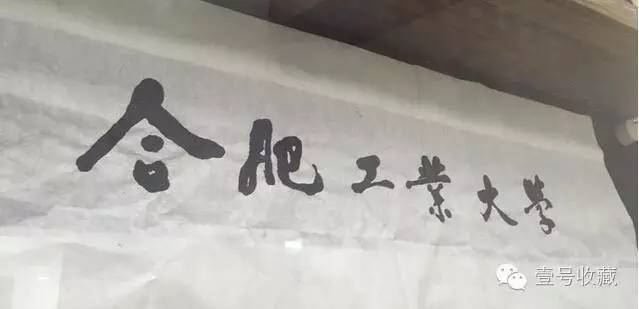 合肥工業大學
壹号收藏